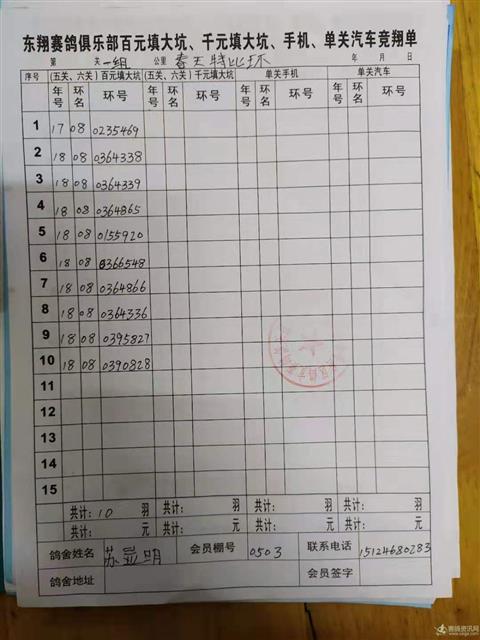 东翔赛鸽俱乐部百元填大坑、千元填大坑、手机、单关汽车竞翔单
第 关 一组 公里 春天特比环 年 月 日
序号 (五关、六关)百元填大坑 (五关、六关)千元填大坑 单关手机 单关汽车
年号 环名 环号 年号 环名 环号 年号 环名 环号 年号 环名 环号
1 17 08 0235469
2 18 08 0364338
3 18 08 0364339
4 18 08 0364865
5 18 08 0155920
6 18 08 0366548
7 18 08 0364866
8 18 08 0364336
9 18 08 0395827
10 18 08 0390828
11
12
13
14
15
共计: 10 羽 共计: 羽 共计: 羽 共计: 羽
共计: 元 共计: 元 共计: 元 共计: 元
鸽舍姓名 苏显明 会员棚号 0503 联系电话 15124680283
鸽舍地址 会员签字
赛鸽资讯网